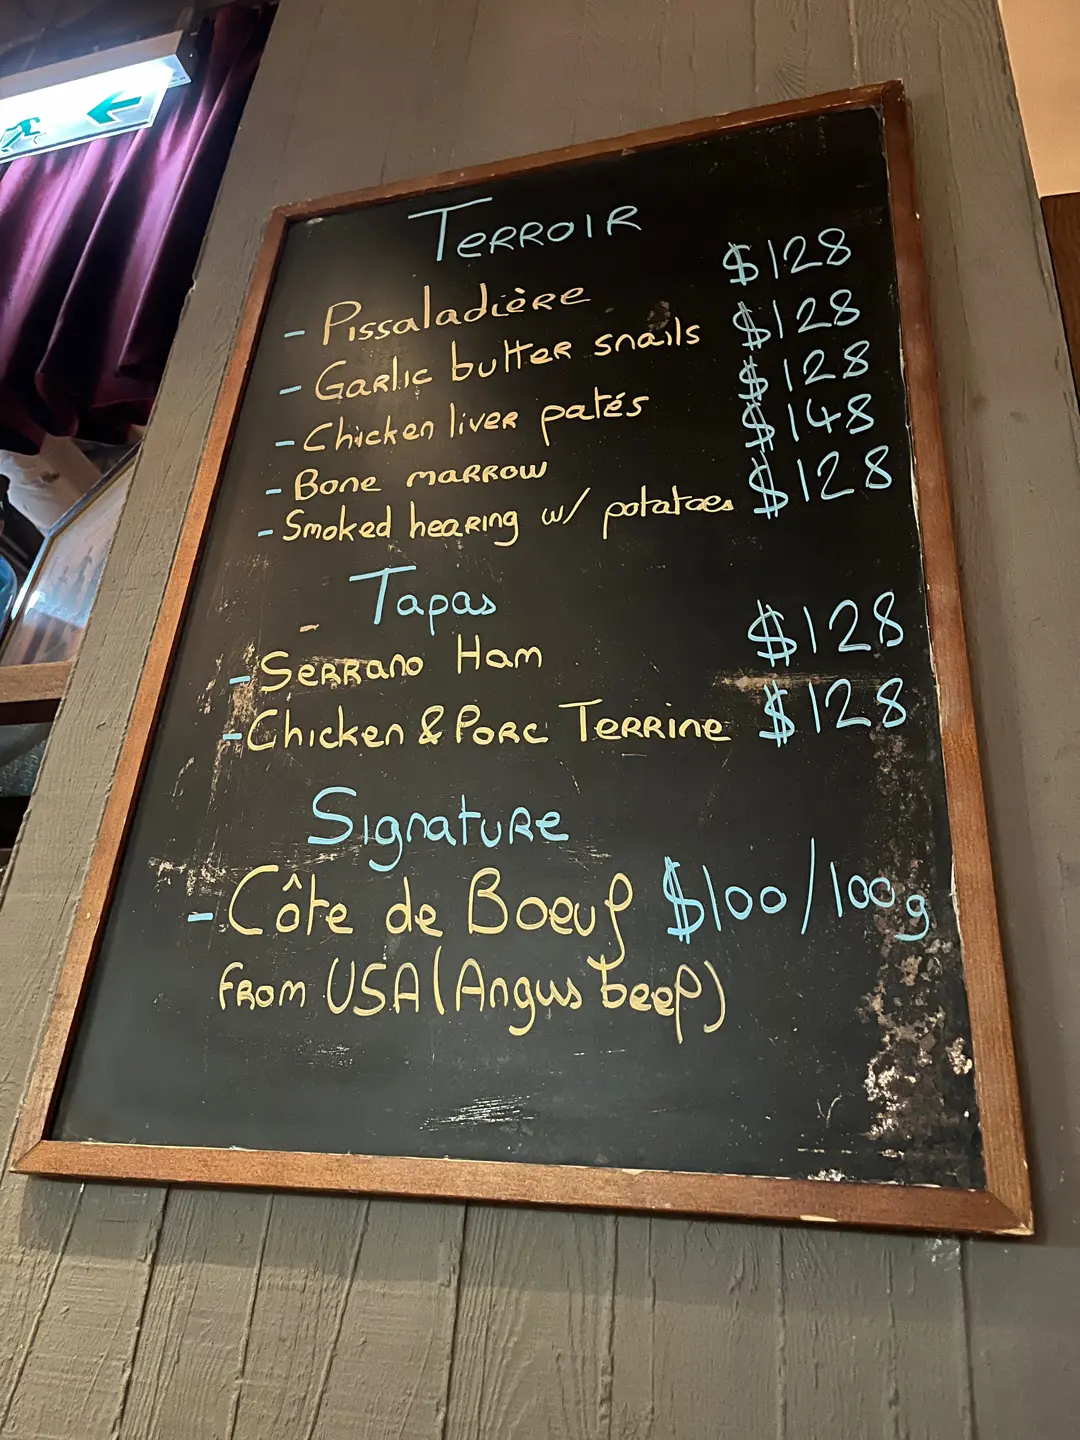 TERROIR
- Pissaladière $128
- Garlic butter snails $128
- Chicken liver patés $128
- Bone marrow $148
- Smoked hearing w/ potatoes $128
Tapas
- Serrano Ham $128
- Chicken & Porc Terrine $128
Signature
- Côte de Boeuf $100/100g
from USA (Angus beef)